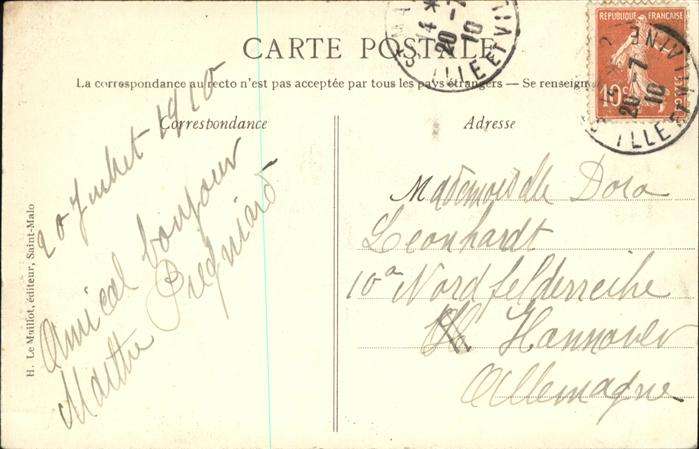 CARTE POSTALE
La correspondance au recto n'est pas acceptée par tous les pays étrangers — Se renseign
Correspondance
Adresse
RÉPUBLIQUE FRANÇAISE
10c
20-7
10
ILLE ET
VILAINE
14
20-7
10
ILLE ET VI
20 Juillet 1910
Amical bonjour
Marthe
Mademoiselle Dora
Leonhardt
10a Nordfelderreihe
Hannover
Allemagne
H. Le Maillot, éditeur, Saint-Malo